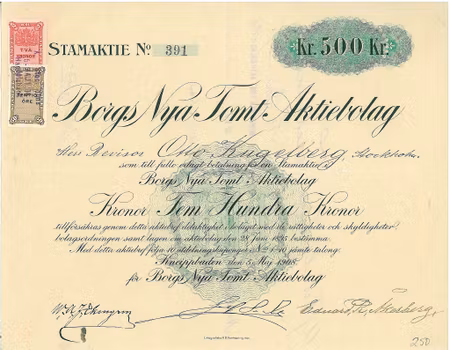 STAMAKTIE No 391
Kr. 500 Kr.
TVÅ
KRONOR
ÖRE
Borgs Nya Tomt Aktiebolag
Herr Revisor Otto Kugelberg, Stockholm
som till fullo erlagt betalning för en stamaktie i
Borgs Nya Tomt Aktiebolag
Kronor Fem Hundra Kronor
tillförsäkras genom detta aktiebref delaktighet i bolaget med de rättigheter och skyldigheter
bolagsordningen samt lagen om aktiebolag den 28 Juni 1895 bestämma.
Med detta aktiebref följa 10 utdelningskuponger No 1-10 jämte talong.
den 5 Maj 1908
för Borgs Nya Tomt Aktiebolag
Eduard R. Åkerberg
250